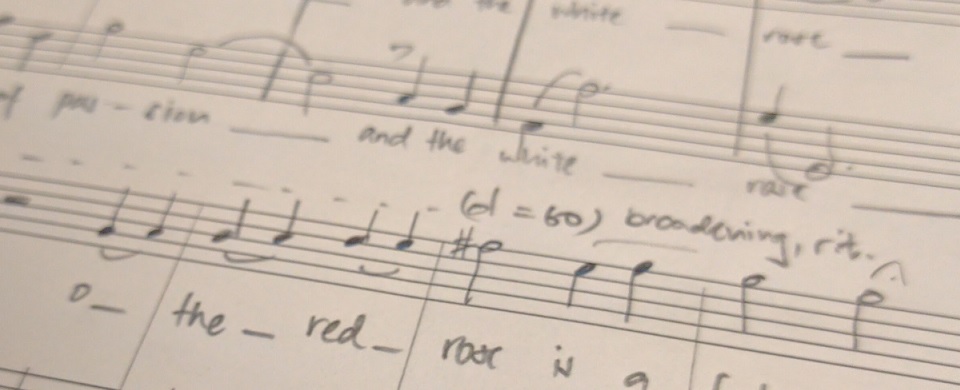 the white __ rose __
of pas - sion __ and the white __ rose __
(d = 60) broadening, rit.
O _ the _ red _ rose is a